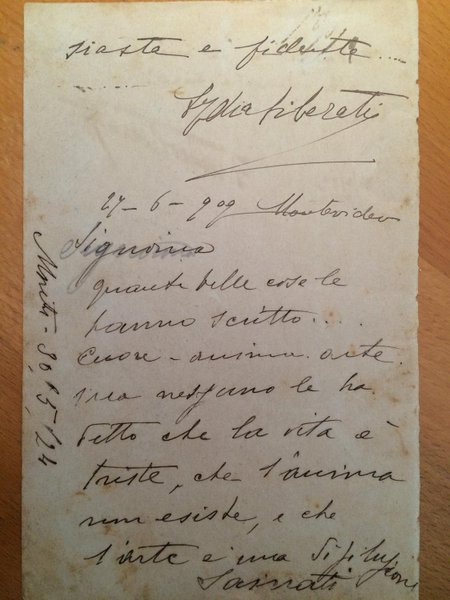 siasta e fidente....
Lydia Liberati
27-6-909 Montevideo
Signorina
quante belle cose le
hanno scritto....
Cuore - anima. arte.
ma nessuno le ha
detto che la vita è
triste, che l'anima
non esiste, e che
l'arte è una disillusione